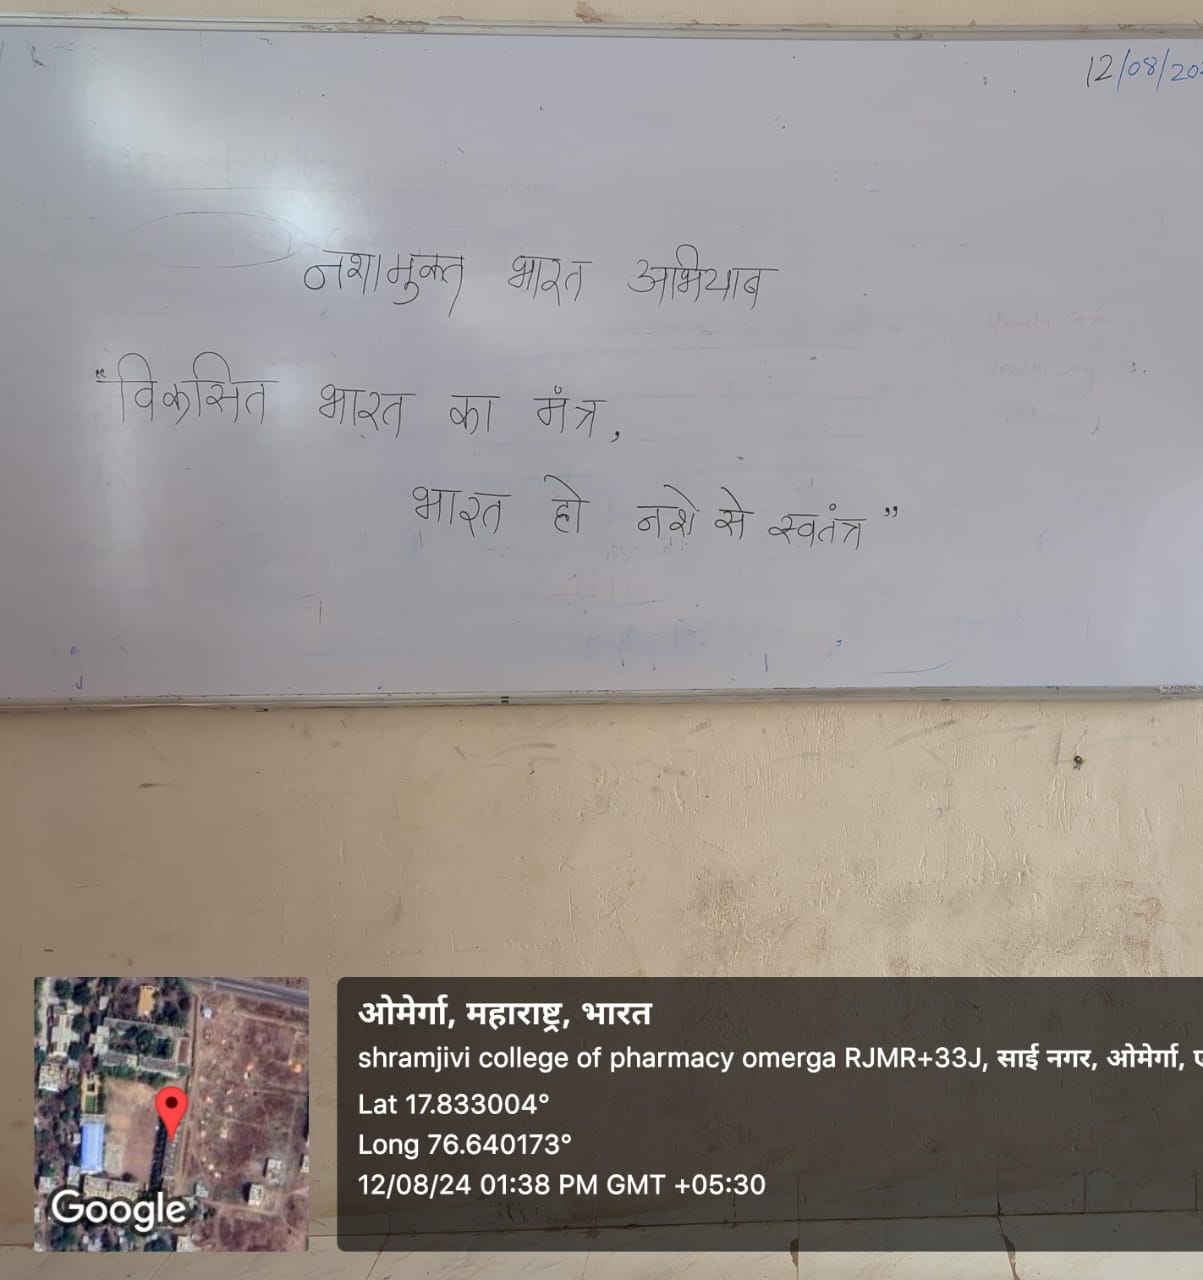 12/08/20
नशामुक्त भारत अभियान
"विकसित भारत का मंत्र,
भारत हो नशे से स्वतंत्र"
Google
ओमेर्गा, महाराष्ट्र, भारत
shramjivi college of pharmacy omerga RJMR+33J, साई नगर, ओमेर्गा,
Lat 17.833004°
Long 76.640173°
12/08/24 01:38 PM GMT +05:30